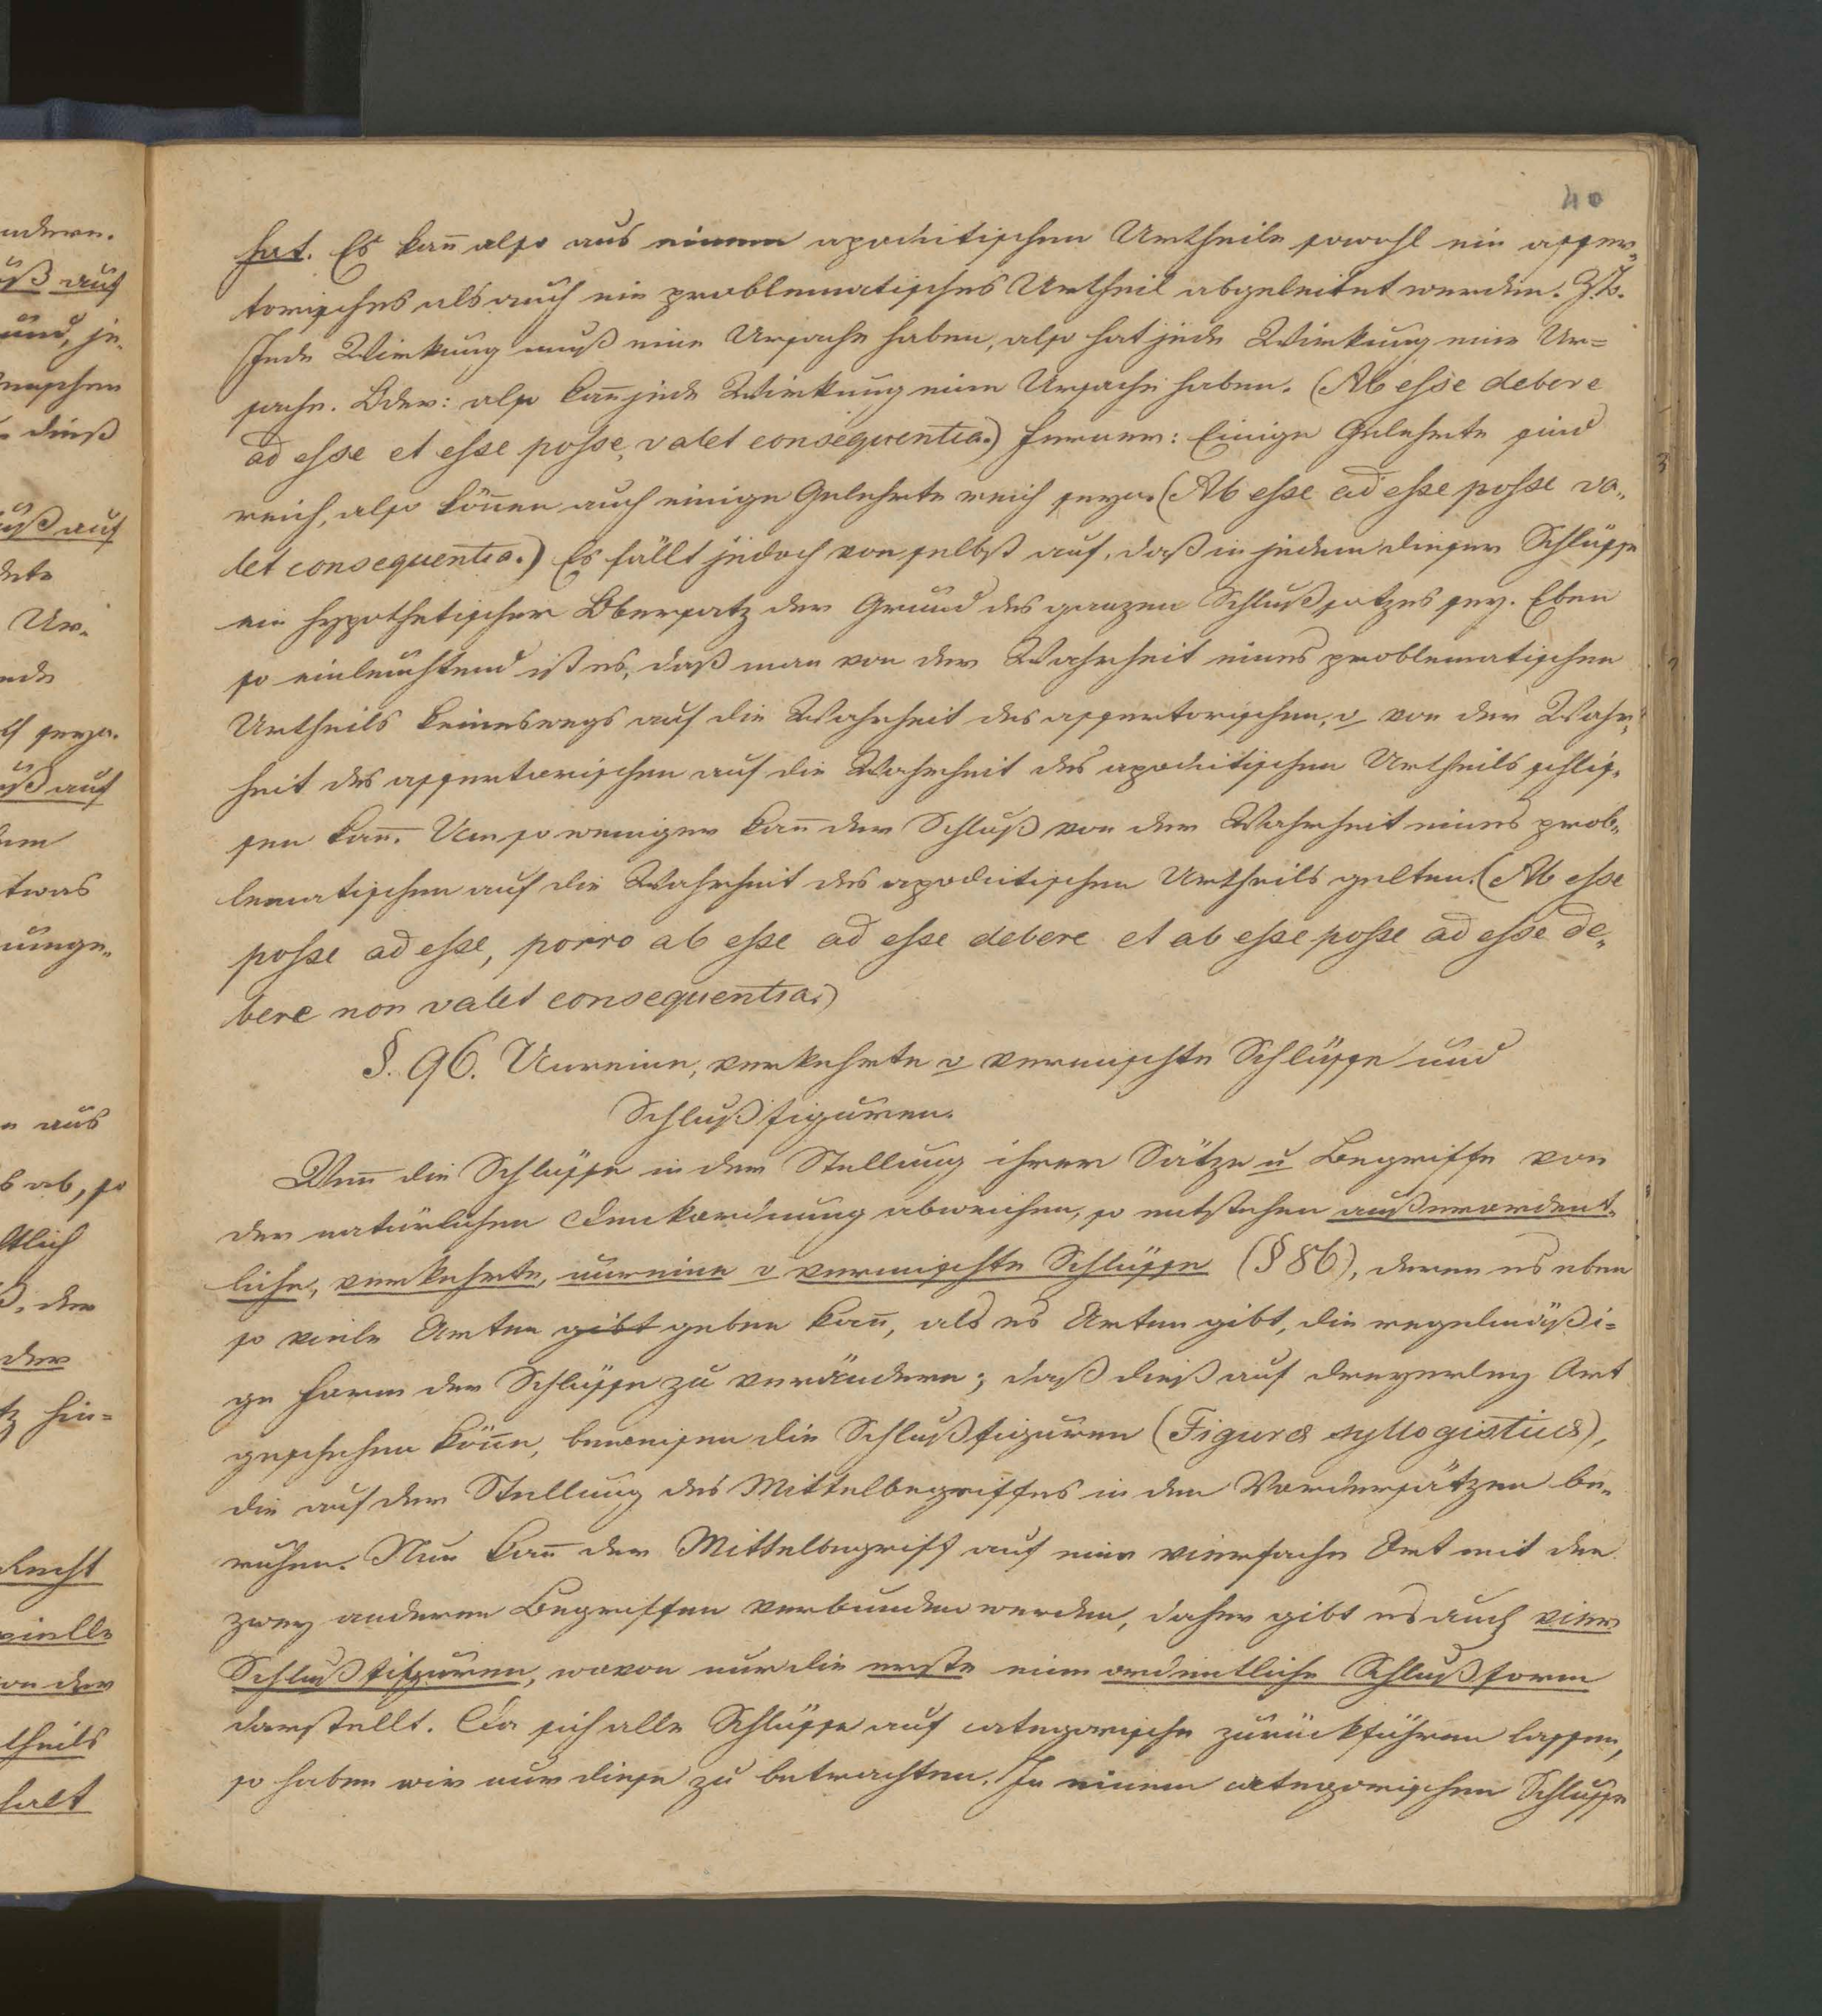 40
hat. Es kan̄ also aus einem apodictischen Urtheile sowohl ein asser„
torisches als auch ein problematisches Urtheil abgeleitet werden. Z.B.
Jede Wirkung muß eine Ursache haben, also hat jede Wirkung eine Ur=
sache. Oder: also kan̄ jede Wirkung eine Ursache haben. (Ab esse debere
ad esse et esse posse, valet consequentia.) Ferner: Einige Gelehrte sind
reich, also kön̄en auch einige Gelehrte reich seyn. (Ab esse ad esse posse va„
let consequentia.) Es fällt jedoch von selbst auf, daß in jedem dieser Schlüsse
ein hypothetischer Obersatz der Grund des ganzen Schlußsatzes sey. Eben
so einleuchtend ist es, daß man von der Wahrheit eines problematischen
Urtheils keineswegs auf die Wahrheit des assertorischen, u von der Wahr„
heit des assertorischen auf die Wahrheit des apodictischen Urtheils schlie„
sen kan̄. Um so weniger kan̄ der Schluß von der Wahrheit eines prob„
lematischen auf die Wahrheit des apodictischen Urtheils gelten. (Ab esse
posse ad esse, porro ab esse ad esse debere et ab esse posse ad esse de„
bere non valet consequentia.)
§. 96. Unreine, verkehrte u vermischte Schlüsse und
Schlußfiguren.
Wen̄ die Schlüsse in der Stellung ihrer Sätze u Begriffe von
der natürlichen Denkordnung abweichen, so entstehen außerordent„
liche, verkehrte, unreine u vermischte Schlüsse (§ 86), deren es eben
so viele Arten gibt geben kan̄, als es Arten gibt, die regelmäßi=
ge Form der Schlüsse zu verändern; daß dieß auf dreyerley Art
geschehen kön̄e, beweisen die Schlußfiguren (Figuræ syllogisticæ),
die auf der Stellung des Mittelbegriffes in den Vordersätzen be„
ruhen. Nun kan̄ der Mittelbegriff auf eine vierfache Art mit den
zwey anderen Begriffen verbunden werden, daher gibt es auch vier
Schlußfiguren, wovon nur die erste eine ordentliche Schlußform
darstellt. Da sich alle Schlüsse auf categorische zurückführen lassen,
so haben wir nur diese zu betrachten. In einem categorischen Schlusse